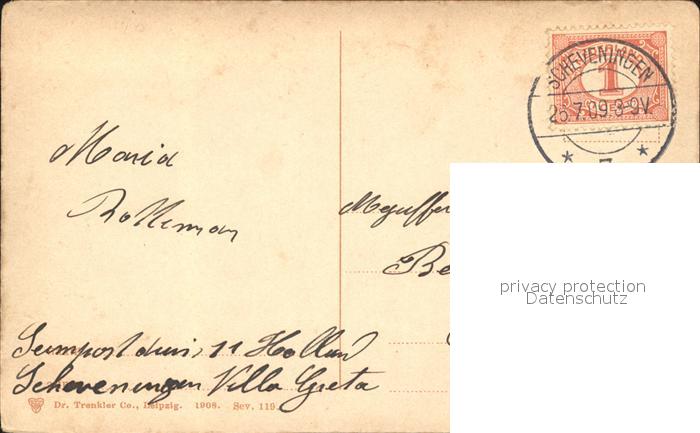 SCHEVENINGEN
1
25.7.09.8-9V.
Maria
Mejuffer
Be
privacy protection
Datenschutz
11 Holland
Scheveningen Villa Greta
Dr. Trenkler Co., Leipzig. 1908. Sev. 119